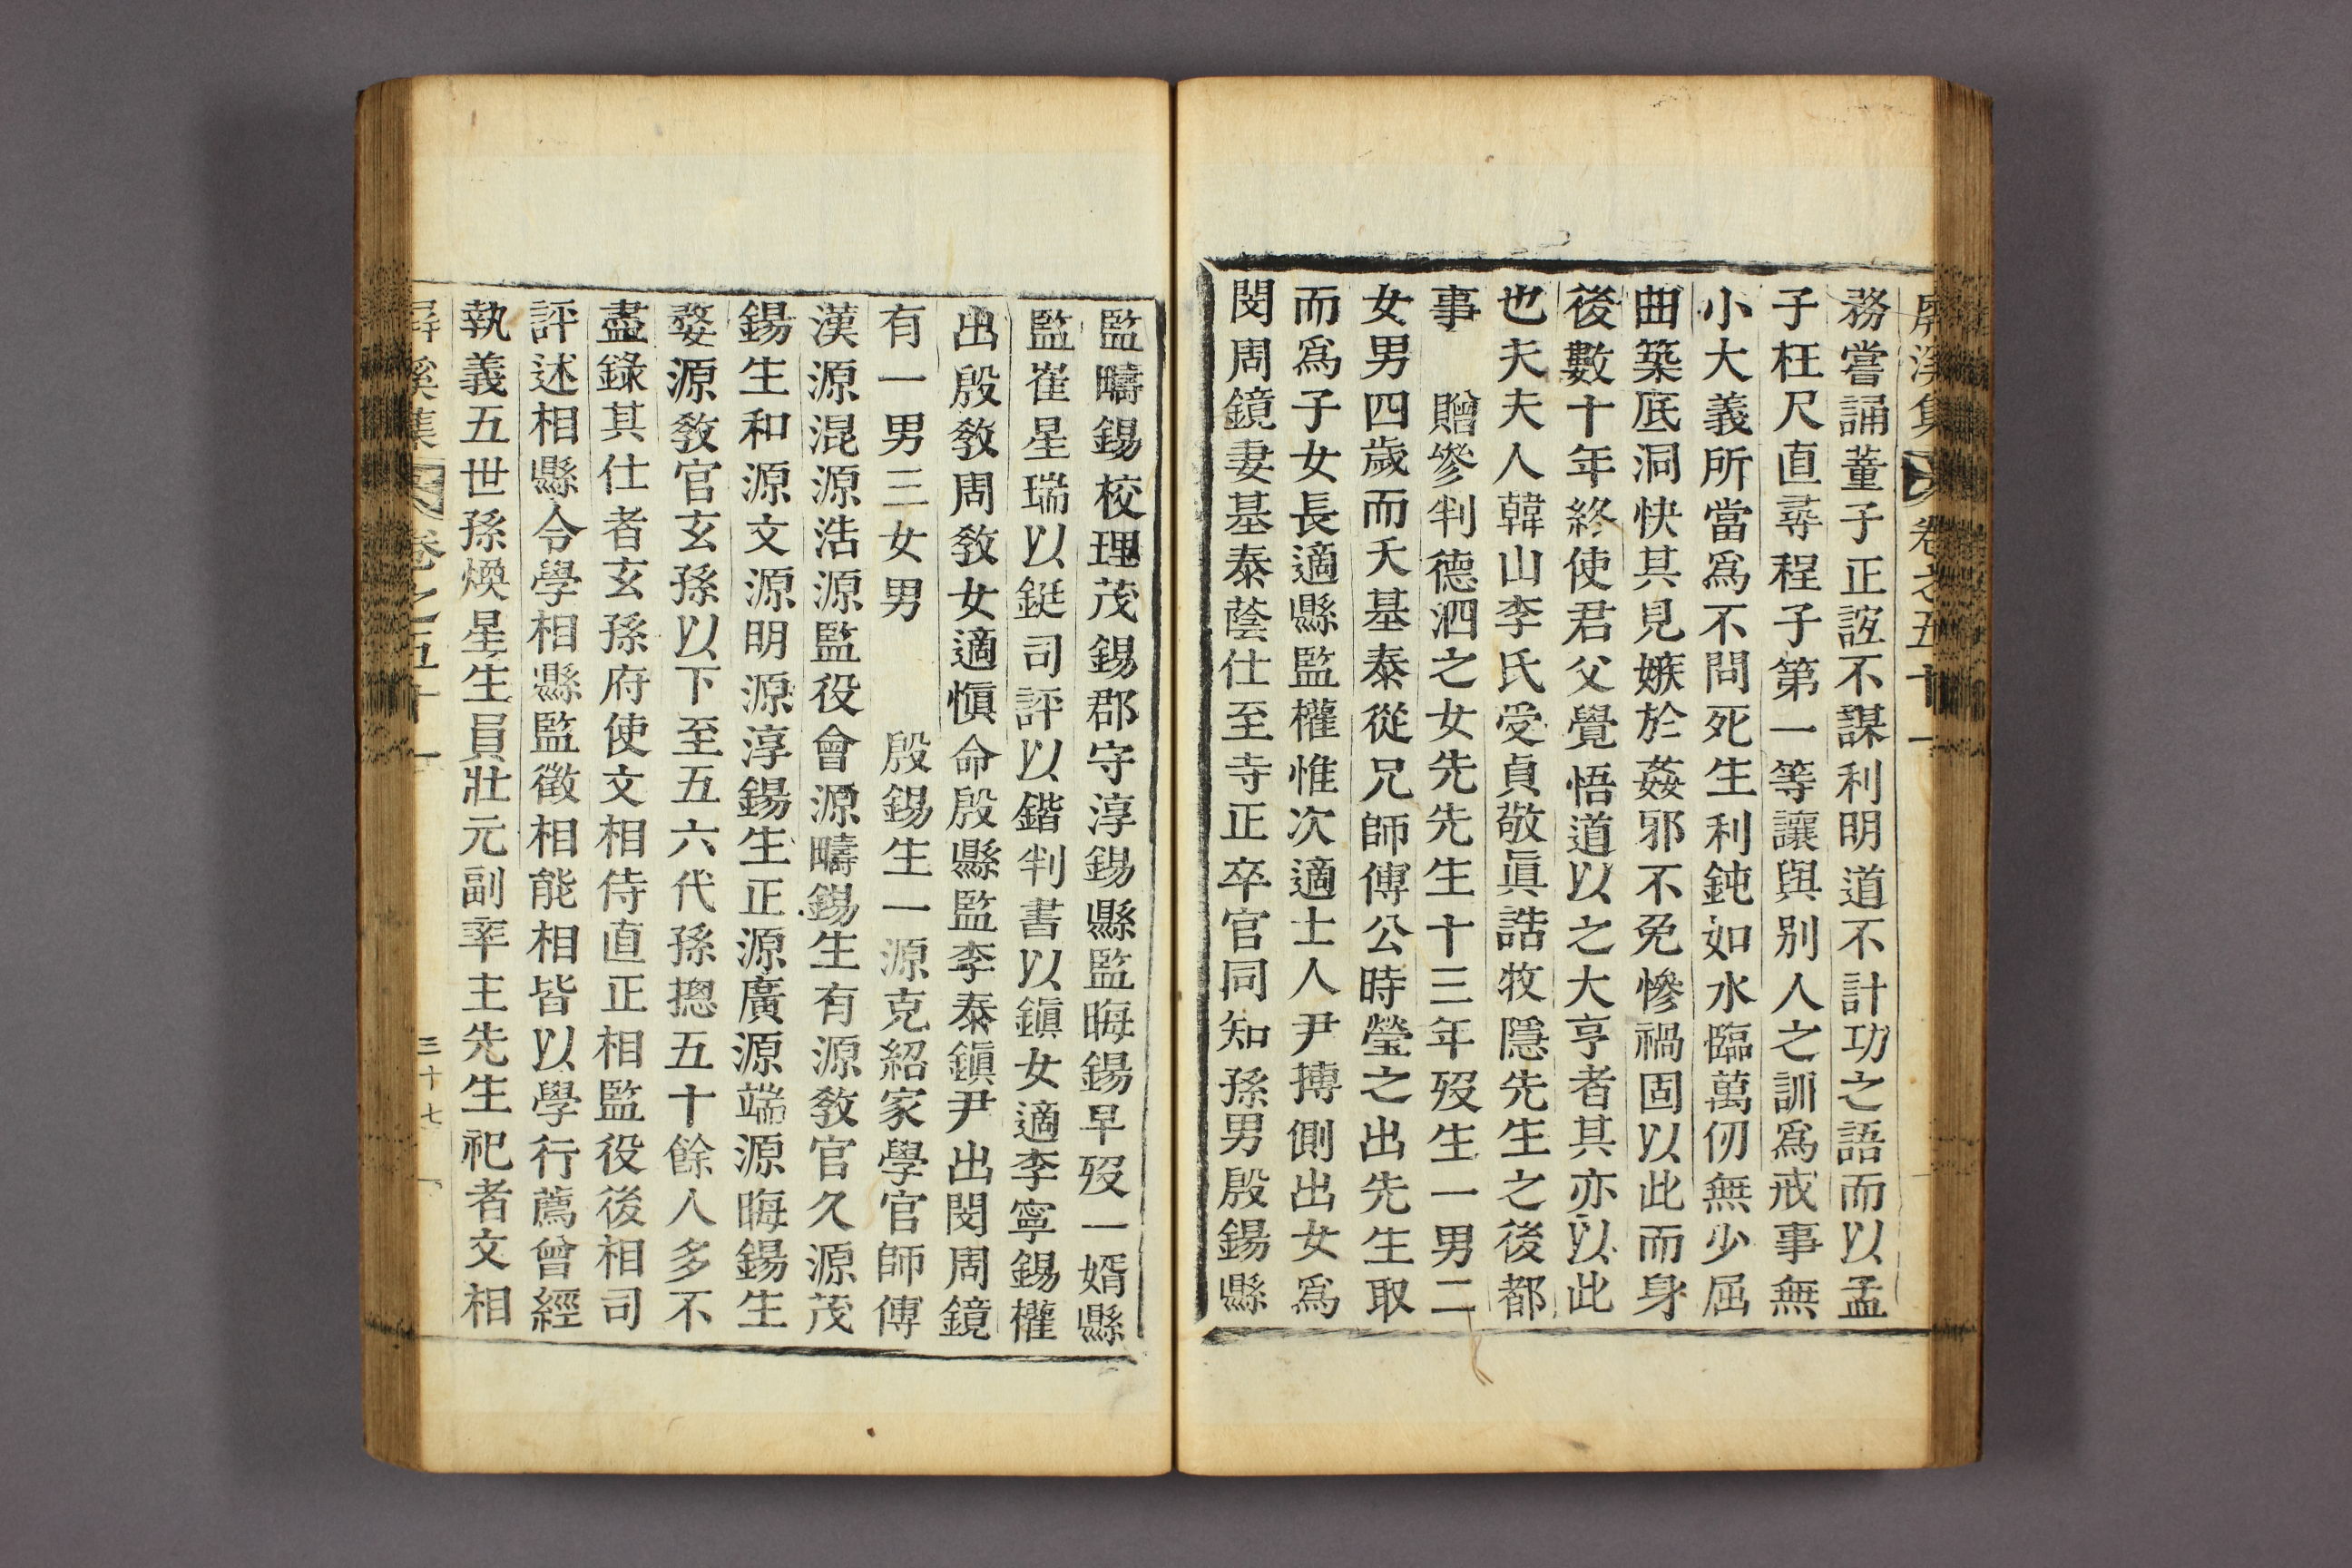 屛溪集 卷之五十一
務嘗誦董子正誼不謀利明道不計功之語而以孟
子枉尺直尋程子第一等讓與別人之訓爲戒事無
小大義所當爲不問死生利鈍如水臨萬仞無少屈
曲築底洞快其見嫉於姦邪不免慘禍固以此而身
後數十年終使君父覺悟道以之大亨者其亦以此
也夫夫人韓山李氏受貞敬眞誥牧隱先生之後都
事 贈參判德泗之女先先生十三年歿生一男二
女男四歲而夭基泰從兄師傅公時瑩之出先生取
而爲子女長適縣監權惟次適士人尹摶側出女爲
閔周鏡妻基泰蔭仕至寺正卒官同知孫男殷錫縣
監疇錫校理茂錫郡守淳錫縣監晦錫早歿一婿縣
監崔星瑞以鋌司評以鍇判書以鎭女適李寧錫權
出殷敎周敎女適愼命殷縣監李泰鎭尹出閔周鏡
有一男三女男 殷錫生一源克紹家學官師傅
漢源混源浩源監役會源疇錫生有源敎官久源茂
錫生和源文源明源淳錫生正源廣源端源晦錫生
婺源敎官玄孫以下至五六代孫摠五十餘人多不
盡錄其仕者玄孫府使文相侍直正相監役後相司
評述相縣令學相縣監徵相能相皆以學行薦曾經
執義五世孫煥星生員壯元副率主先生祀者文相
屛溪集 卷之五十一 三十七